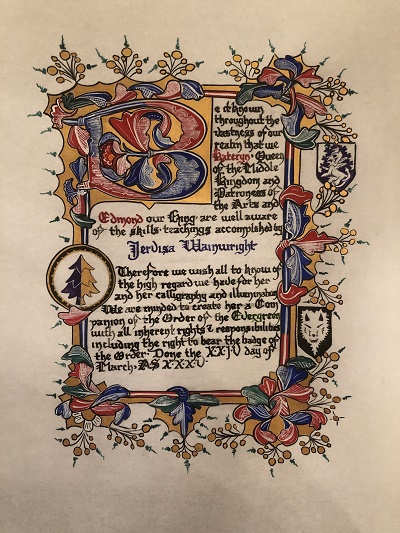 Be it known
throughout the
vastness of our
realm that we
Kateryn Queen
of the Middle
Kingdom and
Patroness of
the Arts and
Edmond our King are well aware
of the skills teachings accomplished by
Jerdisa Wainwright
Therefore we wish all to know of
the high regard we have for her
and her calligraphy and illumination
We are minded to create her a Com
panion of the Order of the Evergreen
with all inherent rights & responsibilities
including the right to bear the badge of
the Order. Done the XXIV day of
March, AS XXXV.